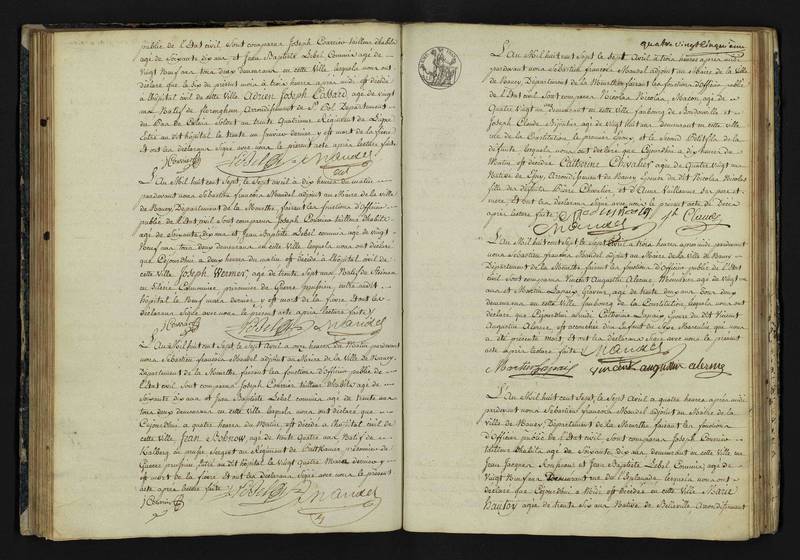 public de l'Etat civil Sont comparus Joseph Cornier tailleur d'habits
agé de Soixante dix ans et Jean Baptiste Lebel Commis agé de
Vingt Neuf ans tous deux demeurans en cette Ville lesquels nous ont
déclaré que le Six du présent mois à trois heures après midi est décédé
à l'hôpital civil de cette Ville Adrien Joseph Cassard, agé de vingt
ans Natif de arrondissement de St Pol Département
du Pas de Calais Soldat au trente Quatrième Régiment de Ligne
Entré au dit hôpital le trente un Janvier dernier, y est mort de la fièvre
Et ont les déclarans Signé avec nous le présent acte après lecture faite
JCornier JBLebel Mandel
L'An Mil huit cent Sept, le Sept avril à dix heures du matin
pardevant nous Sébastien françois Mandel adjoint au Maire de la ville
de Nancy, Département de la Meurthe, faisant les fonctions d'officier
public de l'Etat civil Sont comparus Joseph Cornier tailleur d'habits
agé de Soixante dix ans et Jean Baptiste Lebel commis agé de vingt
Neuf ans tous deux demeurans en cette Ville lesquels nous ont déclaré
que Cejourd'hui à deux heures du matin est décédé à l'hôpital civil de
cette Ville Joseph Werner, agé de trente Sept ans Natif de
en Silésie prisonnier de Guerre prussien, entré au dit
hôpital le Neuf mars dernier, y est mort de la fièvre Et ont les
déclarans Signé avec nous le présent acte après lecture faite
JCornier JBLebel Mandel
L'An Mil huit cent Sept, le Sept Avril à onze heures du Matin pardevant
nous Sébastien françois Mandel adjoint au Maire de la Ville de Nancy,
Département de la Meurthe faisant les fonctions d'officier public de
l'Etat civil Sont comparus Joseph Cornier tailleur d'habits agé de
Soixante dix ans et Jean Baptiste Lebel commis agé de
tous deux demeurans en cette Ville lesquels nous ont déclaré que
Cejourd'hui à quatre heures du Matin est décédé à l'hôpital civil de
cette Ville, Jean Bohnow, agé de trente Quatre ans Natif de
Kalberg en prusse Sergent au Régiment de prisonnier de
Guerre prussien Entré au dit hôpital le Vingt Quatre Mars dernier y
est mort de la fièvre Et ont les déclarans Signé avec nous le présent
acte après lecture faite
JCornier JBLebel Mandel
quatre Vingt Cinquième
L'An Mil huit cent Sept le Sept Avril à trois heures après midi
pardevant nous Sébastien françois Mandel adjoint au Maire de la Ville
de Nancy, Département de la Meurthe faisant les fonctions d'officier public
de l'Etat civil Sont comparus Nicolas Nicolas, Macon agé de
Quatre Vingt ans demeurant en cette Ville faubourg de et
Joseph Claude agé de Vingt huit ans demeurant en cette Ville
rue de la Constitution le premier Epoux et le Second Petit fils de la
défunte lesquels nous ont déclaré que Cejourd'hui à dix heures du
Matin est décédée Catherine Chivalier agée de Quatre Vingt ans
Native de arrondissement de Nancy Epouse du dit Nicolas Nicolas
fille des défunts Pierre Chivalier et d'Anne Vuillaume Ses père et
mère, Et ont les déclarans Signé avec nous le présent acte de Décès
après lecture faite
Mandel
L'An Mil huit cent Sept le Sept Avril à trois heures après midi pardevant
nous Sébastien françois Mandel adjoint au Maire de la Ville de Nancy
Département de la Meurthe faisant les fonctions d'officier public de l'Etat
civil Sont comparus Vincent Augustin Alerme agé de trente un
ans et Martin Lapaix Graveur agé de trente deux ans tous deux
demeurans en cette Ville, faubourg de la Constitution lesquels nous ont
déclaré que Cejourd'hui Catherine Lapaix Epouse du dit Vincent
Augustin Alerme, est accouchée d'un Enfant du Sexe Masculin qui nous
a été présenté mort Et ont les déclarans Signé avec nous le présent
acte après lecture faite Mandel
Martin Lapaix vincent augustin alerme
L'An Mil huit cent Sept, le Sept Avril à quatre heures après midi
pardevant nous Sébastien françois Mandel adjoint au Maire de la
Ville de Nancy, Département de la Meurthe faisant les fonctions
d'officier public de l'Etat civil Sont comparus Joseph Cornier
tailleur d'habits agé de Soixante dix ans, demeurant en cette Ville, rue
Jean Jacques Rousseau et Jean Baptiste Lebel Commis, agé de
Vingt Neuf ans demeurant rue de l'Esplanade lesquels nous ont
déclaré que Cejourd'hui à Midi est décédée en cette Ville Marie
agée de trente Six ans Native de Belleville arrondissement